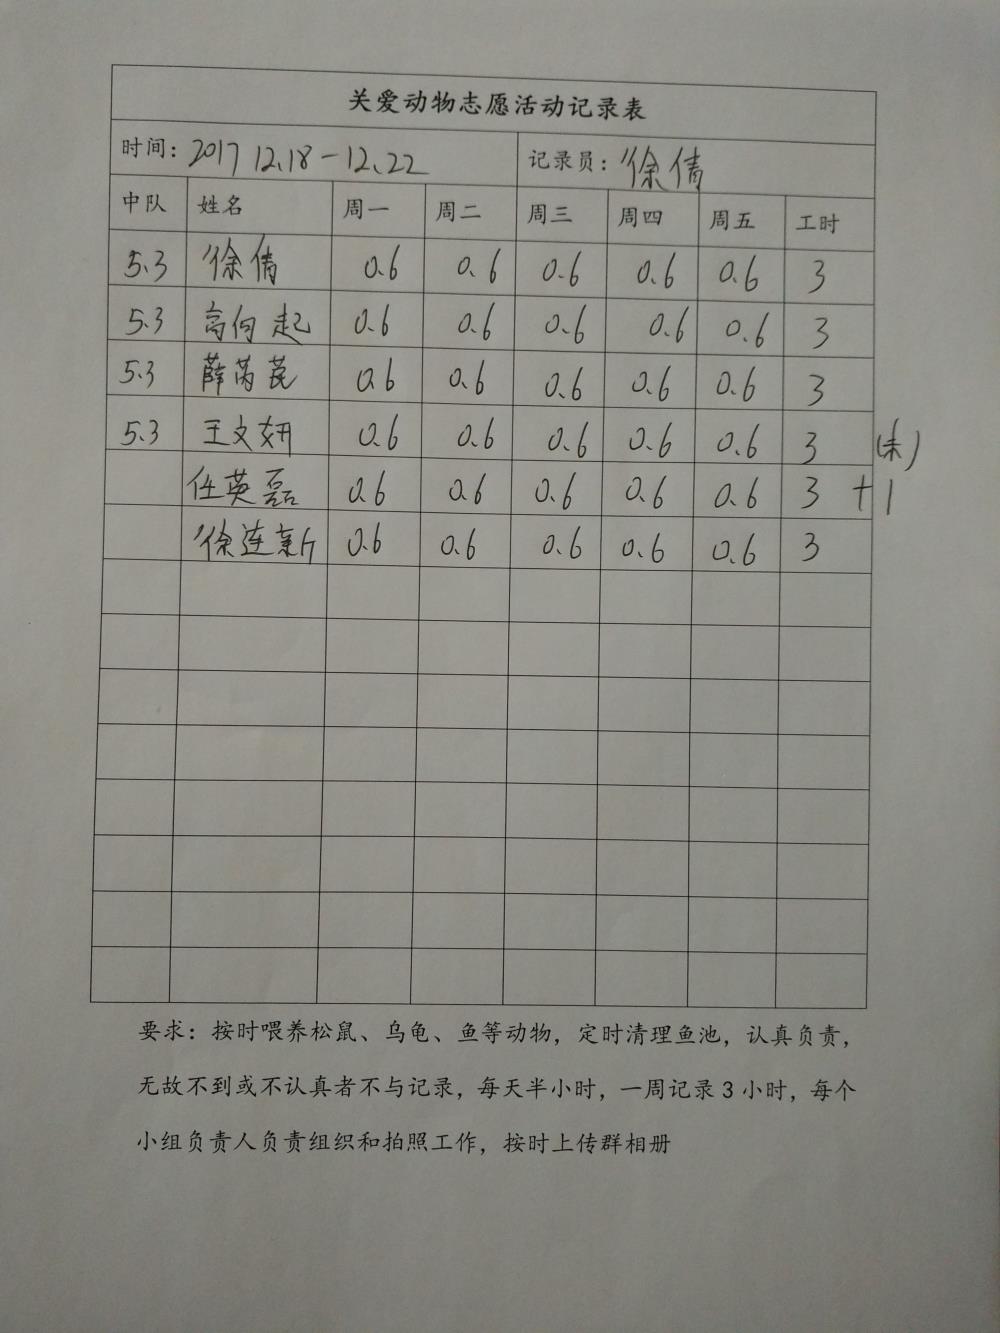 关爱动物志愿活动记录表
时间：2017 12.18－12.22 记录员：徐倩
中队 姓名 周一 周二 周三 周四 周五 工时
5.3 徐倩 0.6 0.6 0.6 0.6 0.6 3
5.3 高向起 0.6 0.6 0.6 0.6 0.6 3
5.3 薛芮芪 0.6 0.6 0.6 0.6 0.6 3
5.3 王文妍 0.6 0.6 0.6 0.6 0.6 3 (未)
任英磊 0.6 0.6 0.6 0.6 0.6 3 +1
徐连新 0.6 0.6 0.6 0.6 0.6 3
要求：按时喂养松鼠、乌龟、鱼等动物，定时清理鱼池，认真负责，
无故不到或不认真者不与记录，每天半小时，一周记录3小时，每个
小组负责人负责组织和拍照工作，按时上传群相册